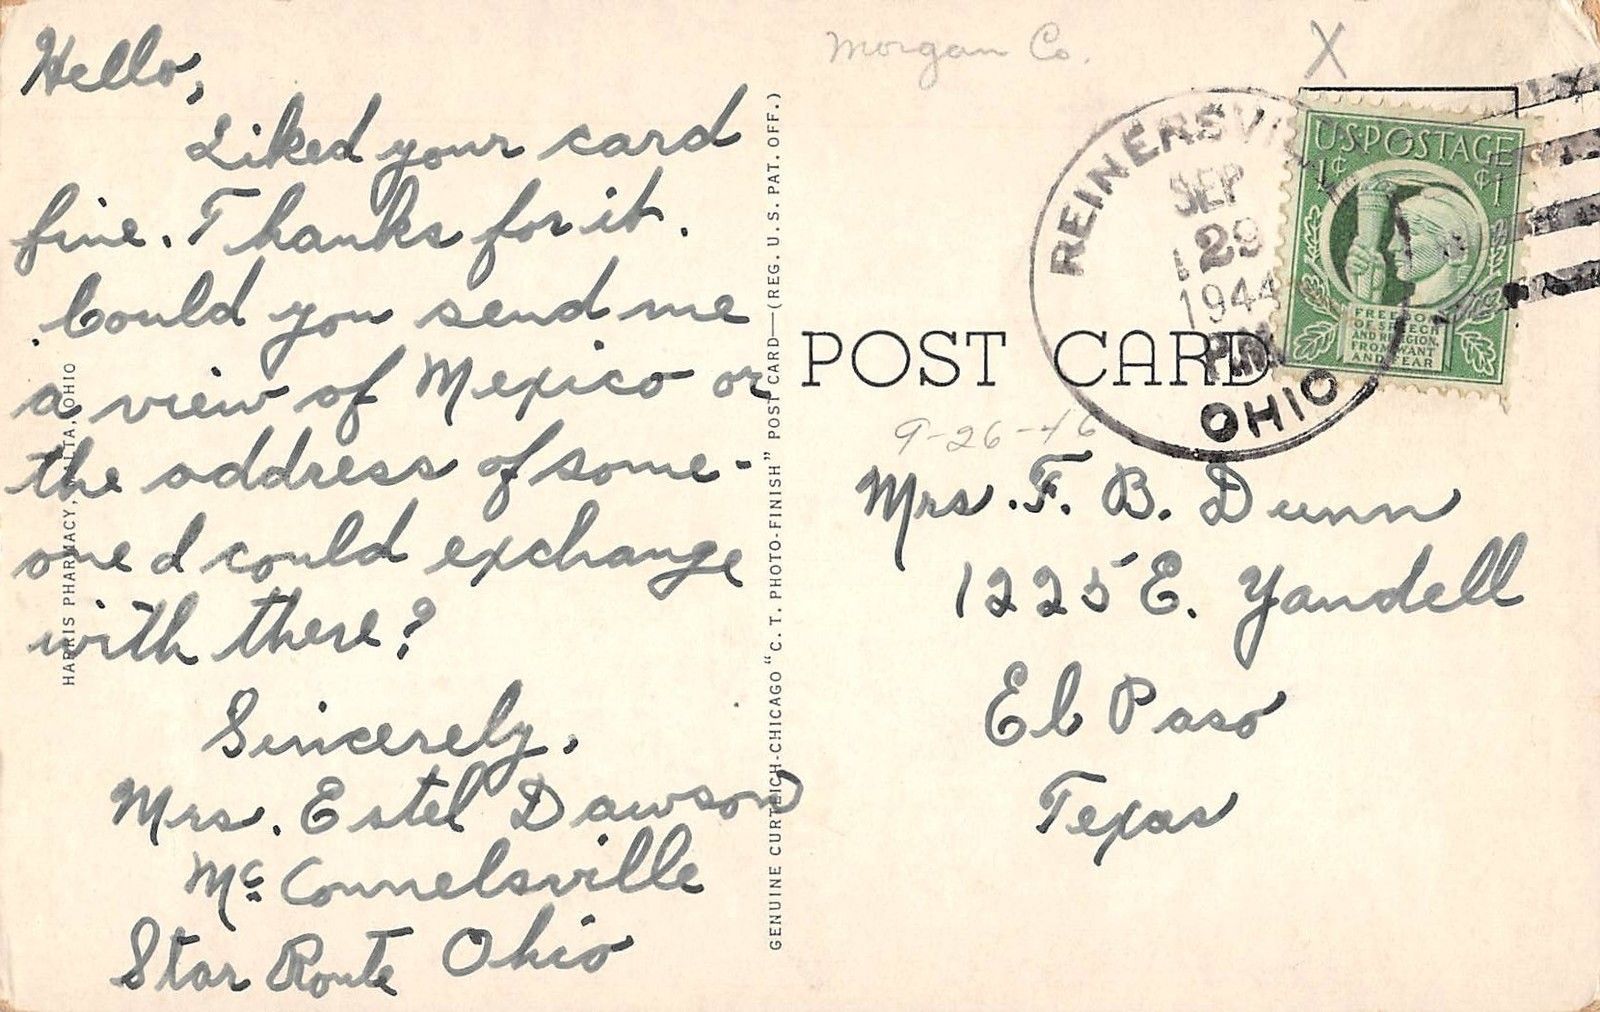 Hello,
Liked your card
fine. Thanks for it.
Could you send me
a view of Mexico or
the address of some-
one I could exchange
with there?
Sincerely,
Mrs. Estel Dawson
Mc Connelsville
Star Route Ohio
HARRIS PHARMACY, MALTA, OHIO
GENUINE CURTEICH-CHICAGO "C. T. PHOTO-FINISH" POST CARD—(REG. U. S. PAT. OFF.)
Morgan Co.
X
REINERSVI
SEP
29
1944
PM
OHIO
U.S. POSTAGE
1¢ ¢1
FREEDOM
OF SPEECH
AND RELIGION,
FROM WANT
AND FEAR
POST CARD
9-26-46
Mrs. F. B. Dunn
1225 E. Yandell
El Paso
Texas